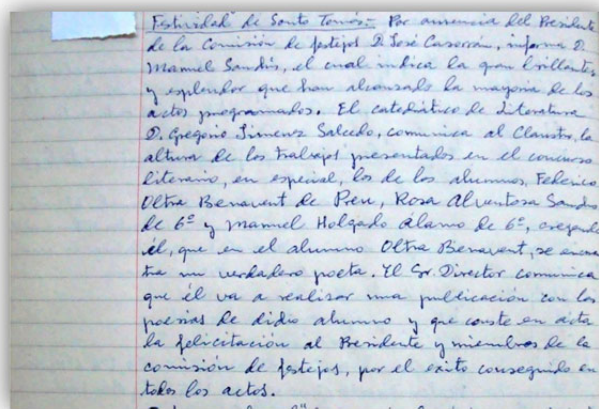 Festividad de Santo Tomás.- Por ausencia del Presidente
de la Comisión de festejos D. José Casorrán, informa D.
Manuel Sanchis, el cual indica la gran brillantez
y esplendor que han alcanzado la mayoría de los
actos programados. El catedrático de Literatura
D. Gregorio Jimenez Salcedo, comunica al Claustro, la
altura de los trabajos presentados en el concurso
literario, en especial, los de los alumnos, Federico
Oltra Benavent de Preu, Rosa Alventosa Sanchis
de 6º y Manuel Holgado Alamo de 6º, creyendo
él, que en el alumno Oltra Benavent, se encuen
tra un verdadero poeta. El Sr. Director comunica
que él va a realizar una publicación con las
poesias de dicho alumno y que conste en acta
la felicitación al Presidente y miembros de la
comisión de festejos, por el exito conseguido en
todos los actos.